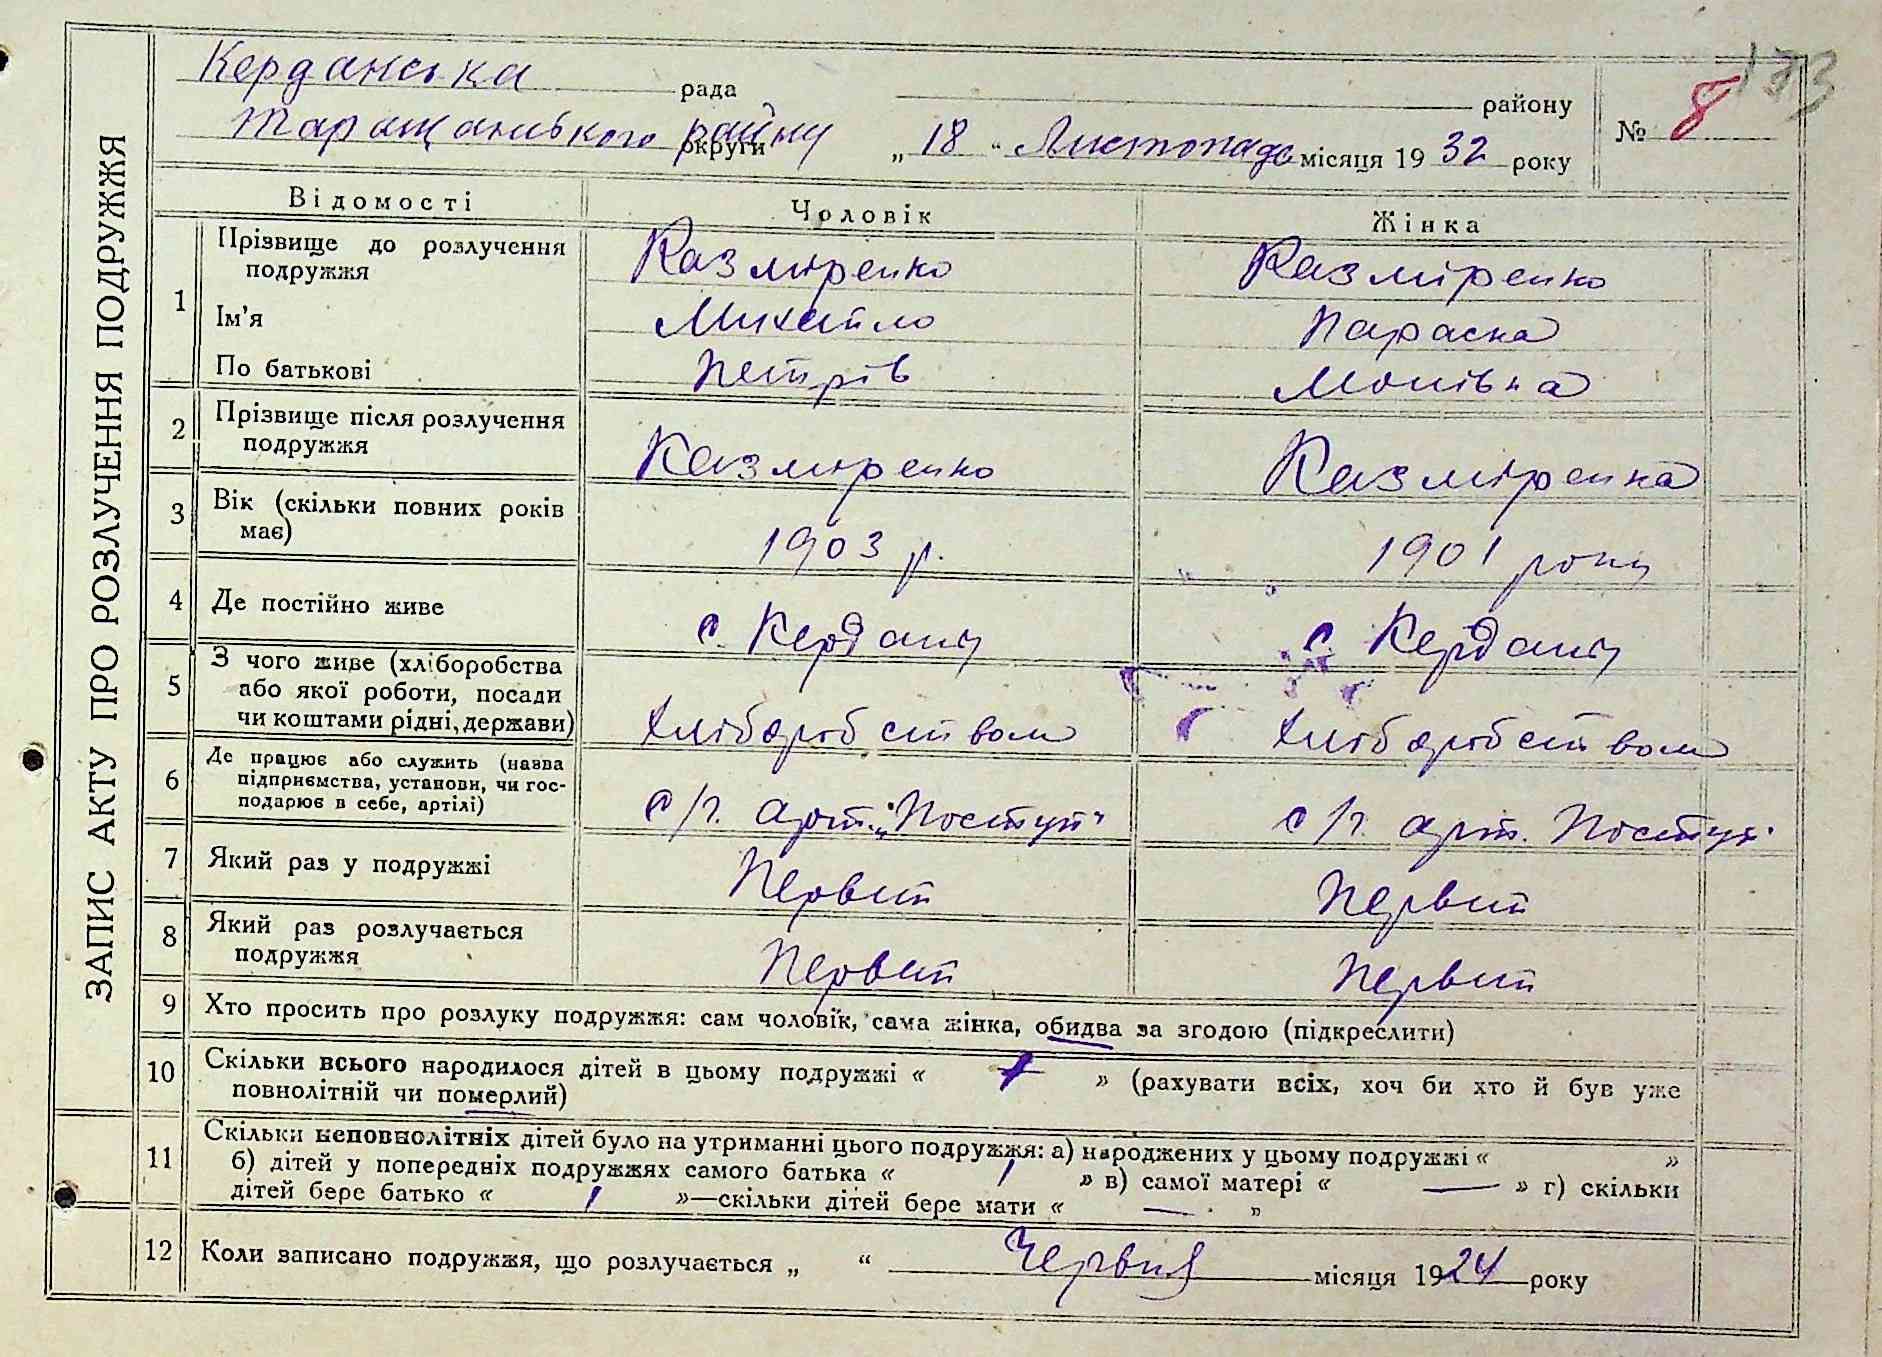 173
Керданська рада району
Таращанського округи району „ 18 “ Листопада місяця 19 32 року
№ 8
ЗАПИС АКТУ ПРО РОЗЛУЧЕННЯ ПОДРУЖЖЯ
Відомості Чоловік Жінка
1 Прізвище до розлучення подружжя Казміренко Казміренко
Ім'я Михайло Параска
По батькові Петрів
2 Прізвище після розлучення
подружжя Казміренко Казміренка
3 Вік (скільки повних років
має) 1903 р. 1901 року
4 Де постійно живе с. Кердани с Кердани
5 З чого живе (хліборобства
або якої роботи, посади
чи коштами рідні, держави) Хліборобством Хліборобством
6 Де працює або служить (назва
підприємства, установи, чи гос-
подарює в себе, артілі) с/г. арт. „Поступ" с/г. арт. Поступ
7 Який раз у подружжі Первий Первий
8 Який раз розлучається
подружжя Первий Первий
9 Хто просить про розлуку подружжя: сам чоловік, сама жінка, обидва за згодою (підкреслити)
10 Скільки всього народилося дітей в цьому подружжі « 1 » (рахувати всіх, хоч би хто й був уже
повнолітній чи померлий)
11 Скільки неповнолітніх дітей було на утриманні цього подружжя: а) народжених у цьому подружжі « »
б) дітей у попередніх подружжях самого батька « 1 » в) самої матері « — » г) скільки
дітей бере батько « 1 »—скільки дітей бере мати « — »
12 Коли записано подружжя, що розлучається „ “ Червня місяця 1924 року